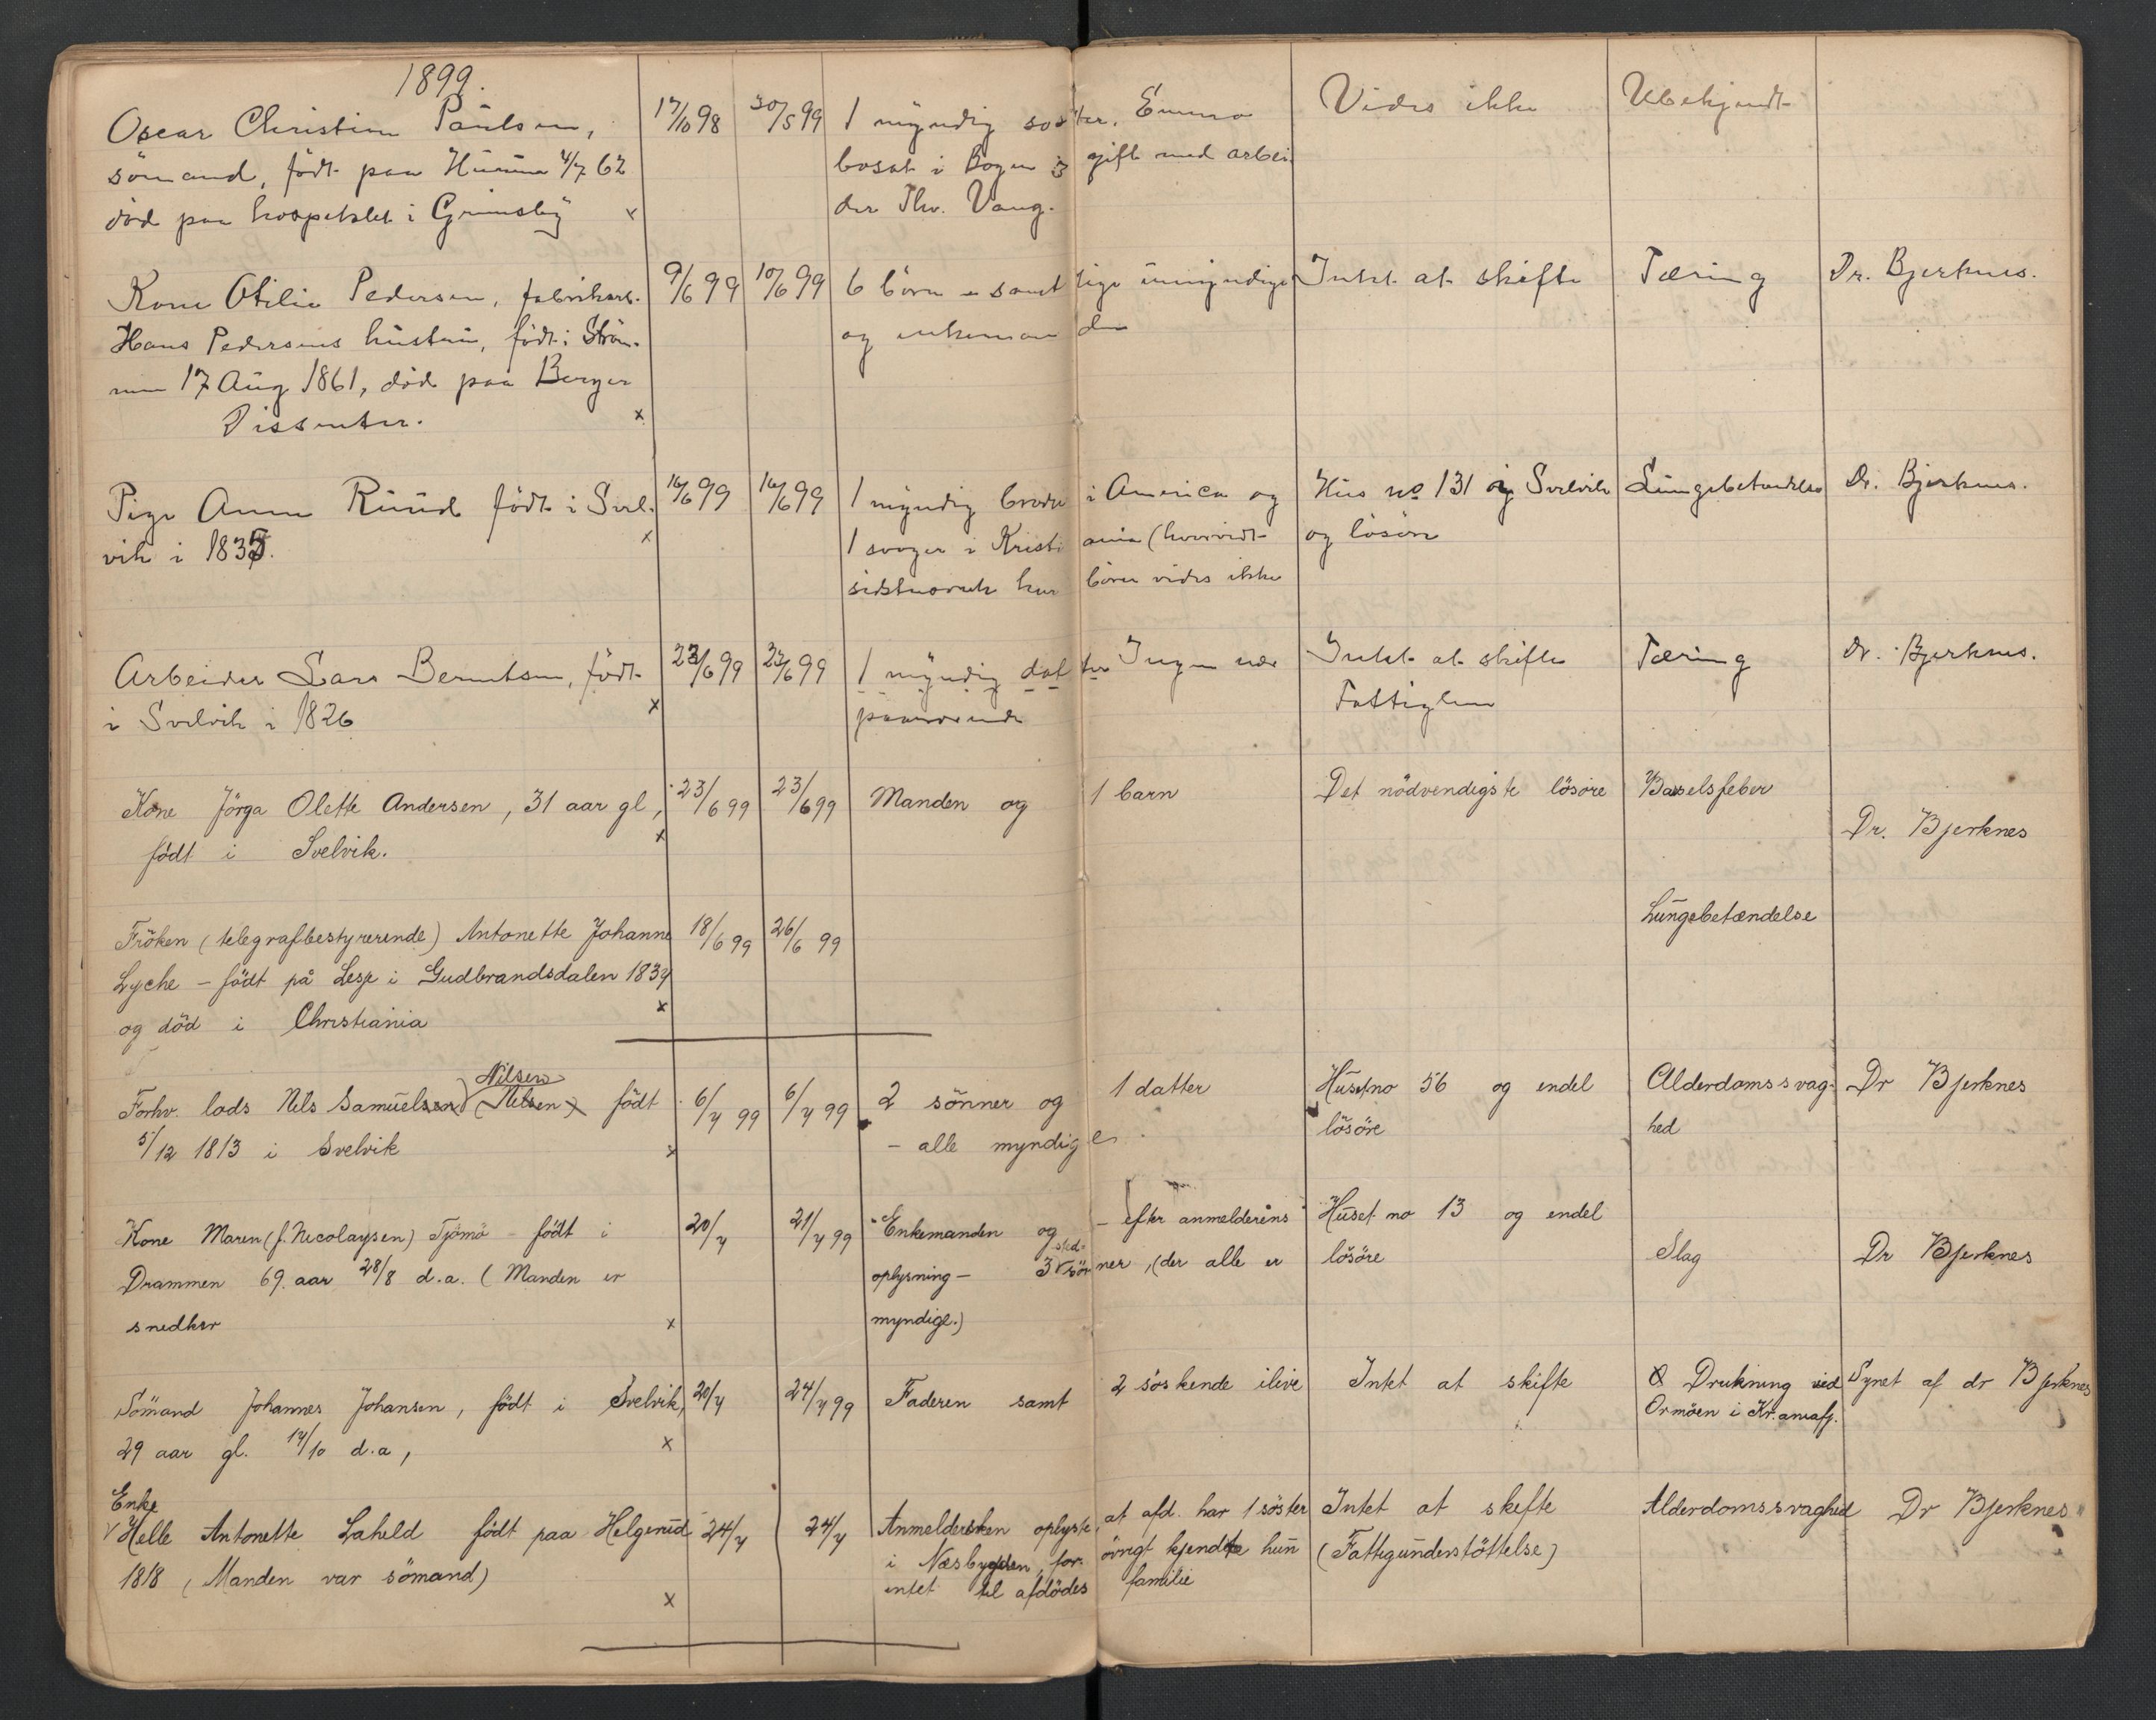 1899.
Oscar Christian Paulsen, 17/10 98 30/5 99 1 myndig søster, Emma Vides ikke Ubekjendt
sömand, födt paa Hurum 4/7 62 bosat i Bogen gift med arbei
död paa hospitalet i Grimsby x der Thv. Vang.
Kone Otilie Pedersen, fabrikarb. 9/6 99 10/6 99 6 börn - samtlige umyndige Intet at skifte Tæring Dr. Bjerknes.
Hans Pedersens hustru, födt i Ström- og enkemanden
men 17 Aug 1861, död paa Berger
Dissenter. x
Pige Anne Ruud födt i Svel- 16/6 99 16/6 99 1 myndig broder i America og Hus no 131 i Svelvik Lungebetændelse Dr. Bjerknes.
vik i 1835. x 1 svoger i Kristiania (hvorvidt og lösöre
sidstnævnte har börn vides ikke
Arbeider Lars Berntsen, födt 23/6 99 23/6 99 1 myndig datter Ingen nær Intet at skifte Tæring Dr. Bjerknes.
i Svelvik i 1826 x paarörende Fattiglem
Kone Jörga Olette Andersen, 31 aar gl, 23/6 99 23/6 99 Manden og 1 barn Det nödvendigste lösöre Barselsfeber
födt i Svelvik. x Dr. Bjerknes
Fröken (telegrafbestyrerende) Antonette Johanne 18/6 99 26/6 99 Lungebetændelse
Lyche - födt på Lesje i Gudbrandsdalen 1834
og död i Christiania x
Nilsen
Forhv. lods Nils Samuelsen (Nilsen) födt 6/7 99 6/7 99 2 sönner og 1 datter Huset no 56 og endel Alderdomssvag- Dr Bjerknes
5/12 1813 i Svelvik x - alle myndige lösöre hed
Kone Maren (f. Nicolaysen) Tjömö födt i 20/7 21/7 99 Enkemanden og - efter anmelderens Huset no 13 og endel
Drammen 69. aar 28/8 d.a. (Manden er oplysning - 3 sted- sönner, (der alle er lösöre Slag Dr Bjerknes
snedker x myndige.)
Sömand Johannes Johansen, födt i Svelvik, 20/7 24/7 99 Faderen samt 2 söskende ilive Intet at skifte Drukning ved Synet af dr Bjerknes
29 aar gl. 14/10 d.a, x Ormöen i Kr.aniafj.
Enke
Helle Antonette Laheld födt paa Helgerud 24/7 24/7 Anmeldersken oplyste, at afd. har 1 söster Intet at skifte Alderdomssvaghed Dr Bjerknes
1818 (Manden var sömand) i Næsbygden, for- övrigt kjendte hun (Fattigunderstöttelse)
x intet til afdödes familie